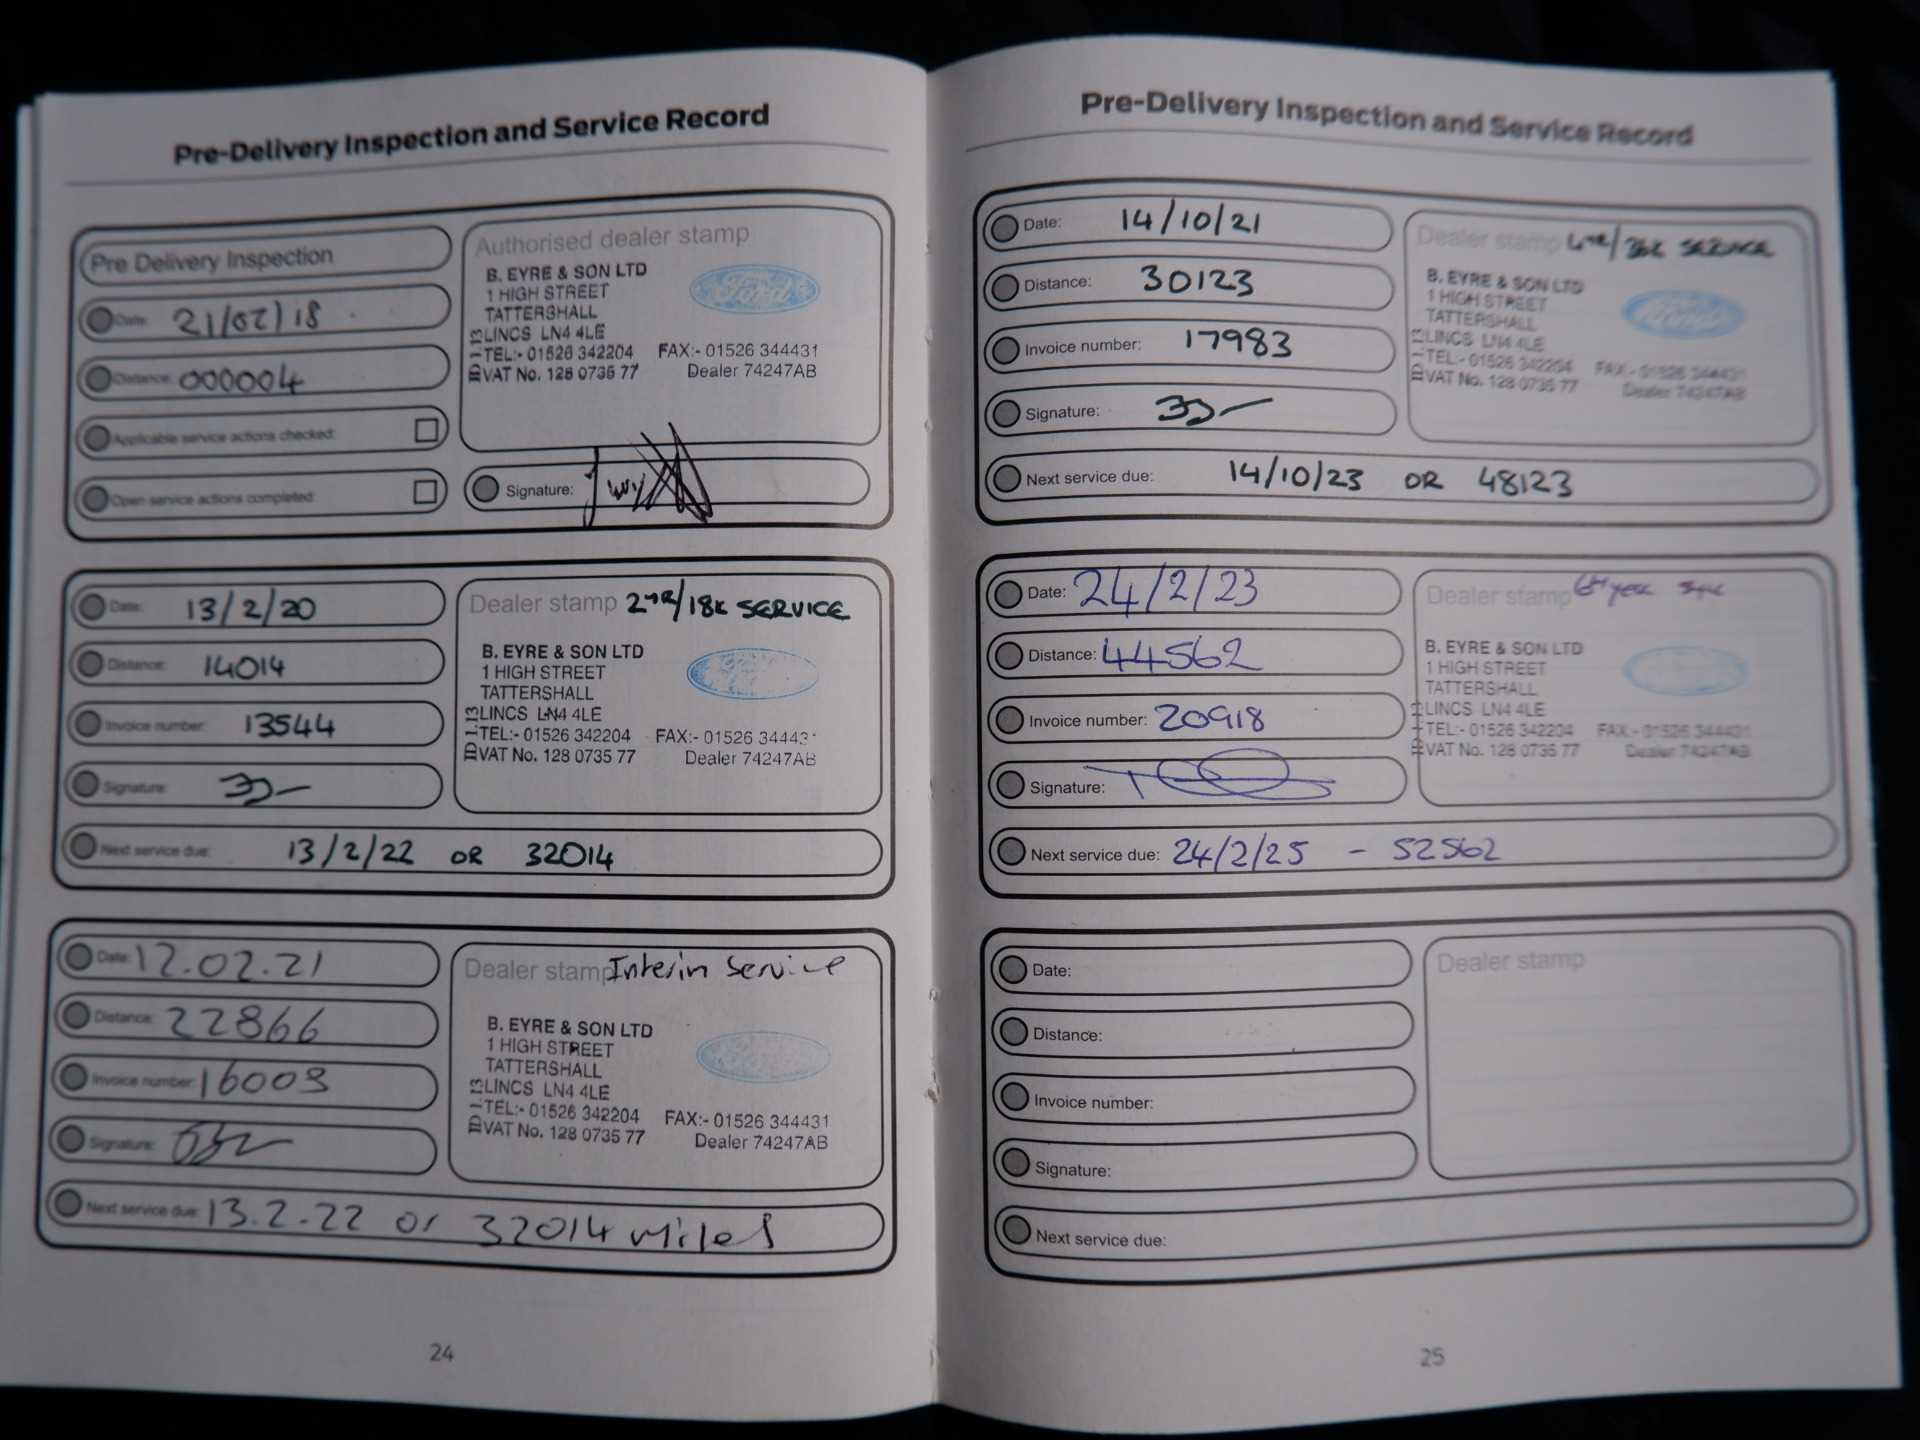 Pre-Delivery Inspection and Service Record
Pre Delivery Inspection
Date: 21/02/18
Distance: 000004
Applicable service actions checked:
Open service actions completed:
Authorised dealer stamp
B. EYRE & SON LTD
1 HIGH STREET
TATTERSHALL
LINCS LN4 4LE
TEL:- 01526 342204 FAX:- 01526 344431
VAT No. 128 0735 77 Dealer 74247AB
Ford
Signature:
Date: 13/2/20
Distance: 14014
Invoice number: 13544
Signature:
Next service due: 13/2/22 OR 32014
Dealer stamp 2YR/18K SERVICE
B. EYRE & SON LTD
1 HIGH STREET
TATTERSHALL
LINCS LN4 4LE
TEL:- 01526 342204 FAX:- 01526 34443
VAT No. 128 0735 77 Dealer 74247AB
Date: 12.02.21
Distance: 22866
Invoice number: 16003
Signature:
Next service due: 13.2.22 or 32014 miles
Dealer stamp Interim Service
B. EYRE & SON LTD
1 HIGH STREET
TATTERSHALL
LINCS LN4 4LE
TEL:- 01526 342204 FAX:- 01526 344431
VAT No. 128 0735 77 Dealer 74247AB
Ford
24
Pre-Delivery Inspection and Service Record
Date: 14/10/21
Distance: 30123
Invoice number: 17983
Signature:
Next service due: 14/10/23 OR 48123
Dealer stamp 4YR/36K SERVICE
B. EYRE & SON LTD
1 HIGH STREET
TATTERSHALL
LINCS LN4 4LE
TEL:- 01526 342204 FAX:- 01526 344431
VAT No. 128 0735 77 Dealer 74247AB
Ford
Date: 24/2/23
Distance: 44562
Invoice number: 20918
Signature:
Next service due: 24/2/25 - 52562
Dealer stamp 6th year
B. EYRE & SON LTD
1 HIGH STREET
TATTERSHALL
LINCS LN4 4LE
TEL:- 01526 342204 FAX:- 01526 344431
VAT No. 128 0735 77 Dealer 74247AB
Date:
Distance:
Invoice number:
Signature:
Next service due:
Dealer stamp
25